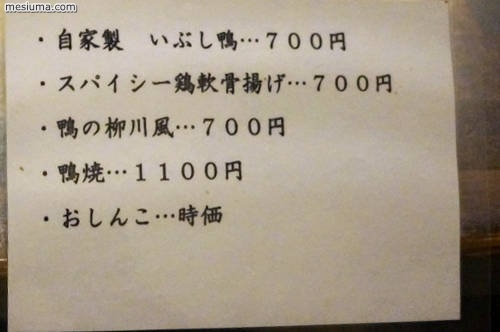 mesiuma.com
・自家製　いぶし鴨…７００円
・スパイシー鶏軟骨揚げ…７００円
・鴨の柳川風…７００円
・鴨焼…１１００円
・おしんこ…時価